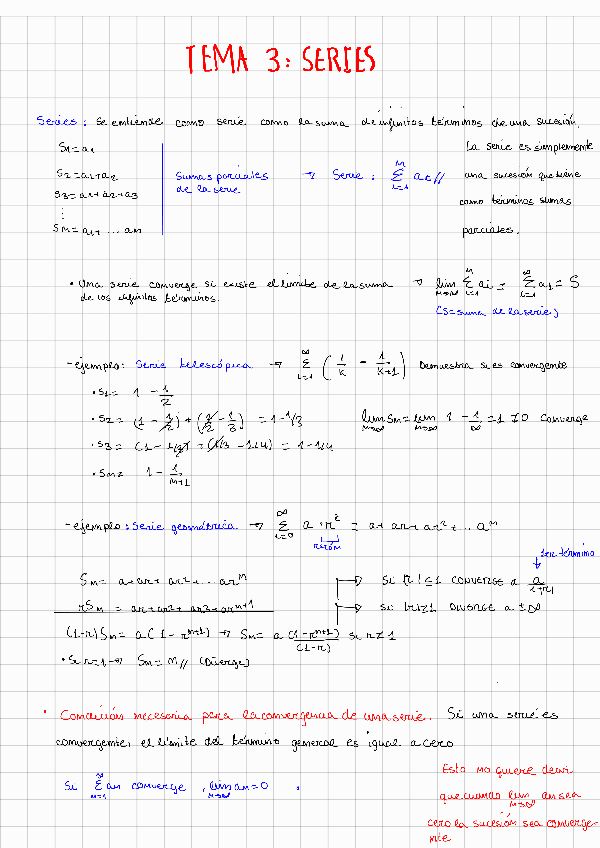 TEMA 3: SERIES
Series: Se entiende como serie como la suma de infinitos términos de una sucesión.
S1 = a1
S2 = a1 + a2
S3 = a1 + a2 + a3
⋮
Sm = a1 + ... am
Sumas parciales de la serie → Serie: Σ_{i=1}^{M} ai //
La serie es simplemente
una sucesión que tiene
como términos sumas
parciales.
• Una serie converge si existe el límite de la suma → lim_{M→∞} Σ_{i=1}^{M} ai = Σ_{i=1}^{∞} ai = S
de los infinitos términos.
(S = suma de la serie)
- ejemplo: Serie telescópica → Σ_{i=1}^{∞} (1/k - 1/(k+1)) Demuestra si es convergente
• S1 = 1 - 1/2
• S2 = (1 - 1/2) + (1/2 - 1/3) = 1 - 1/3
lim_{m→∞} Sm = lim_{m→∞} 1 - 1/∞ = 1 ≠ 0 Converge
• S3 = (1 - 1/2) + (1/3 - 1/4) = 1 - 1/4
• Sm = 1 - 1/(m+1)
- ejemplo: Serie geométrica → Σ_{i=0}^{∞} a · r^i = a + ar + ar² + ... a^m
razón
1er término
Sm = a + ar + ar² + ... ar^m
rSm = ar + ar² + ar³ + ar^{m+1}
(1-r)Sm = a(1 - r^{m+1}) → Sm = a (1 - r^{m+1})/(1-r) si r ≠ 1
• Si r=1 → Sm = M // (Diverge)
→ si |r| ≤ 1 CONVERGE a a/(1+r)
→ si |r| ≥ 1 DIVERGE a ±∞
• Condición necesaria para la convergencia de una serie. Si una serie es
convergente, el límite del término general es igual a cero
Si Σ_{n=1}^{∞} an converge, lim_{m→∞} an = 0.
Esto no quiere decir
que cuando lim_{m→∞} an sea
cero la sucesión sea converge-
nte